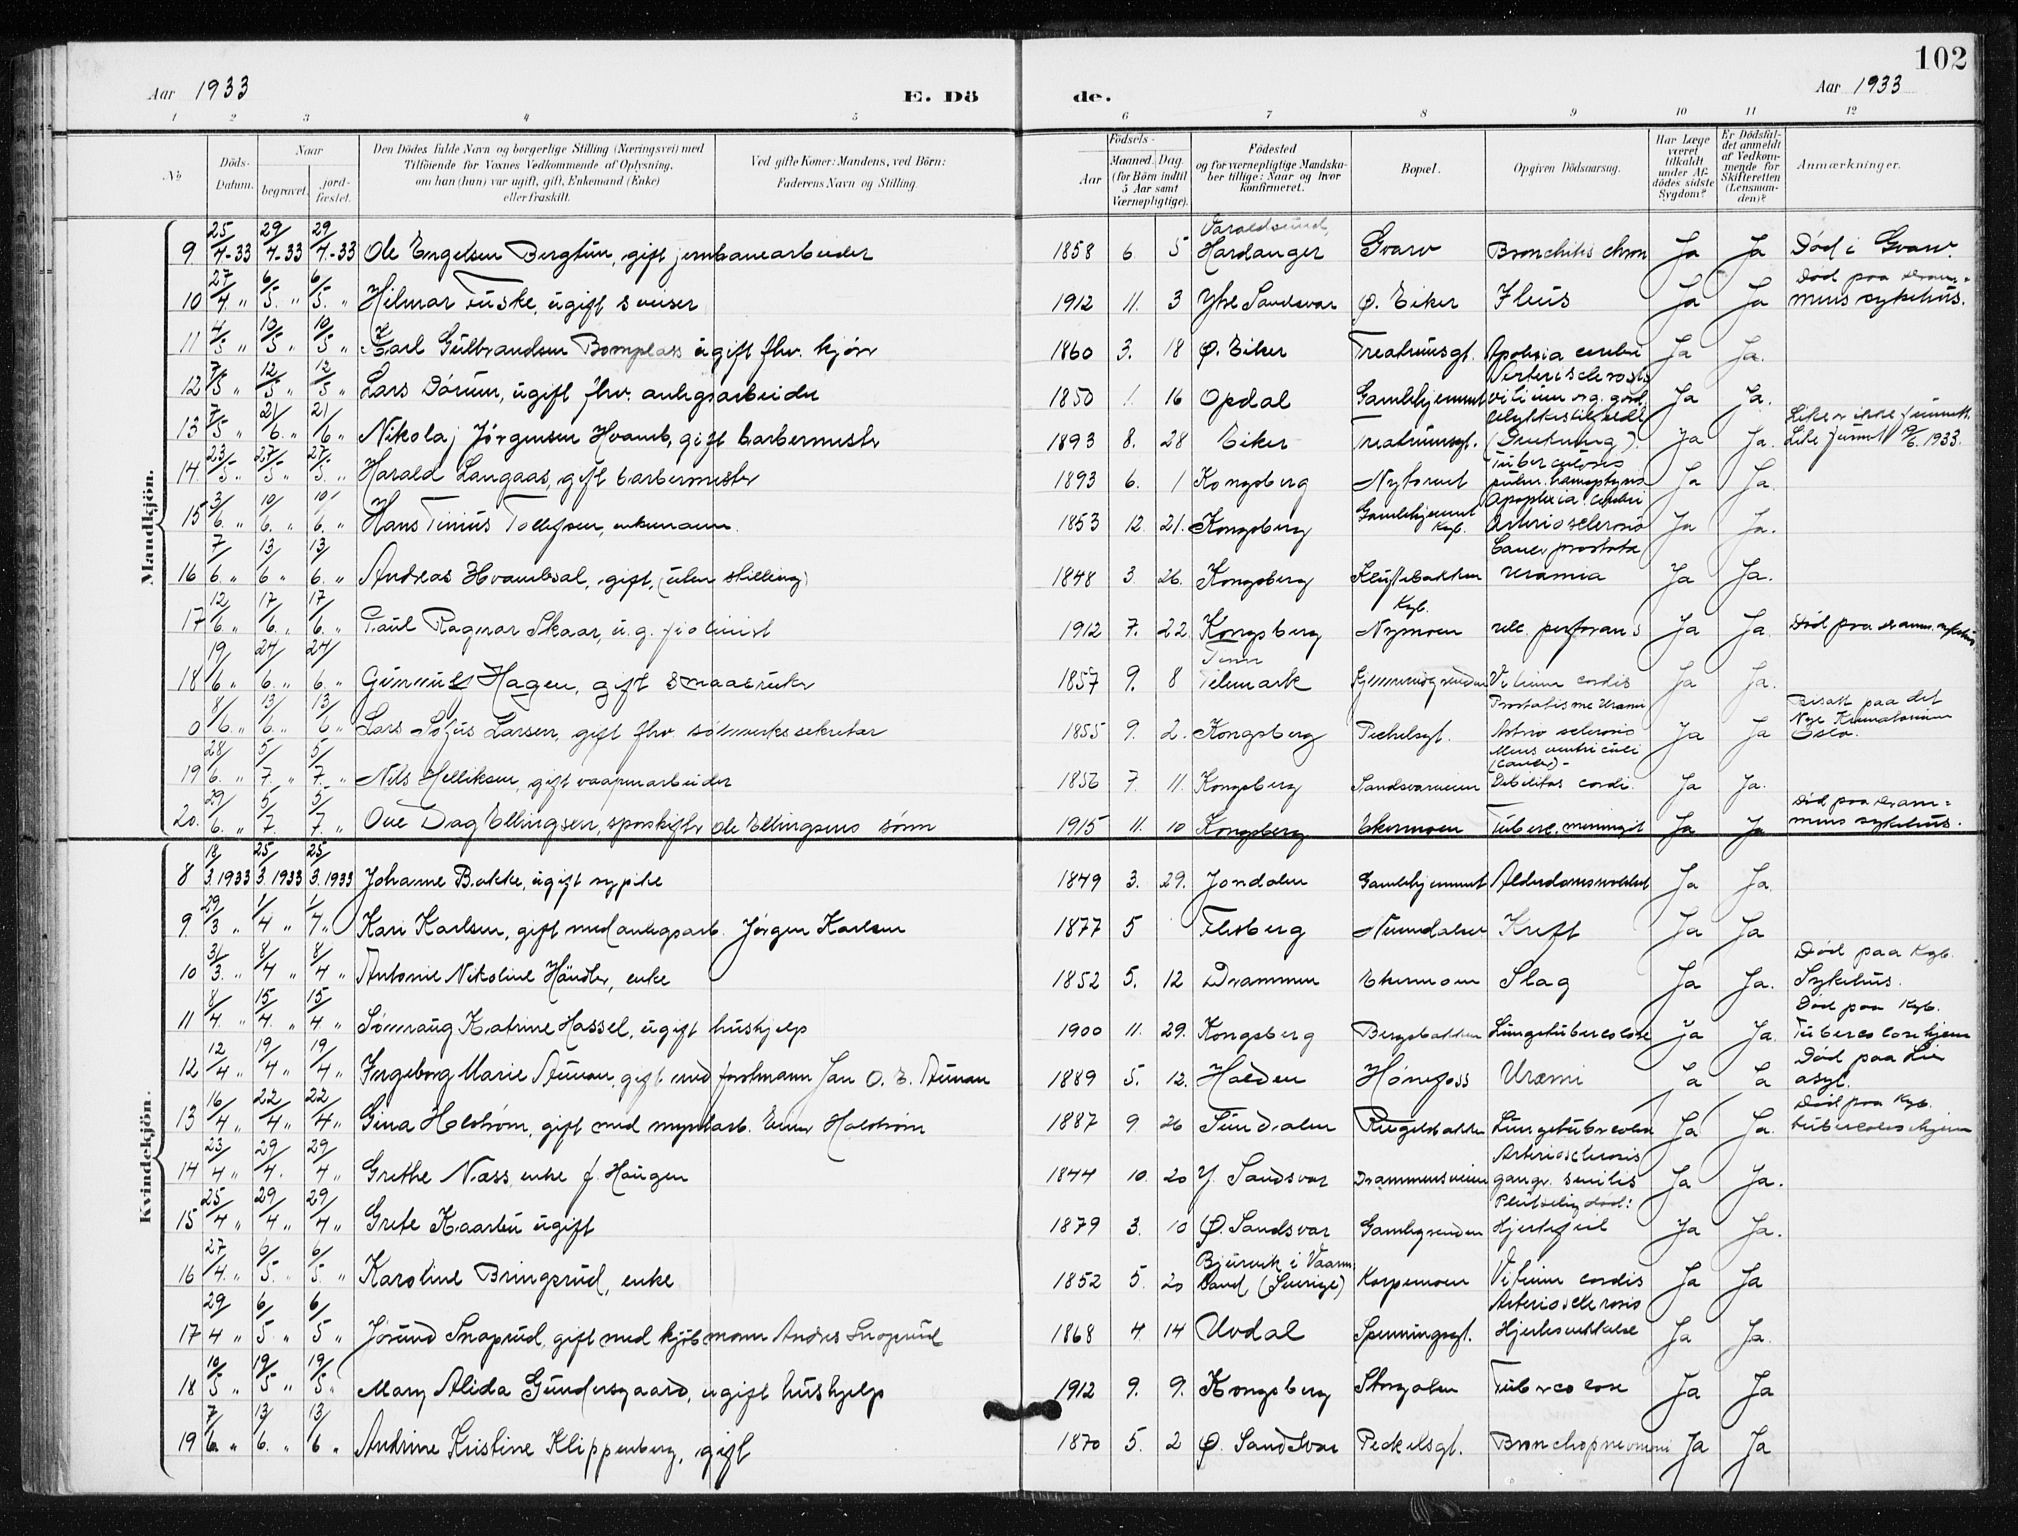 102
Aar 1933 E. Dö de. Aar 1933
1 2 3 4 5 6 7 8 9 10 11 12
No
Döds-Datum.
Naar
begravet. jordfæstet.
Den Dödes fulde Navn og borgerlige Stilling (Næringsvei) med
Tilföiende for Voxnes Vedkommende af Oplysning,
om han (hun) var ugift, gift, Enkemand (Enke)
eller fraskilt.
Ved gifte Koner: Mandens, ved Börn:
Faderens Navn og Stilling.
Födsels-
Aar Maaned. Dag.
(for Börn indtil 5 Aar samt Værnepligtige).
Födested
og for værnepligtige Mandskaber tillige: Naar og hvor konfirmeret.
Bopæl.
Opgiven Dödsaarsag.
Har Læge været tilkaldt under Afdödes sidste Sygdom?
Er Dödsfaldet anmeldt af Vedkommende for Skifteretten (Lensmanden)?
Anmærkninger.
Mandkjön.
9. 25/4-33 29/4-33 29/4-33 Ole Engelsen Bergtun, gift jernbanearbeider 1858 6. 5 Varaldsund, Hardanger Gvarv Bronchitis chron Ja Ja Död i Gvarv.
10 27/4. " 6/5. " 6/5. " Hilmar Fuske, ugift sveiser 1912 11. 3 Ytre Sandsvær Ø. Eiker Ileus Ja Ja Död paa Drammens sykehus.
11 4/5 " 10/5 " 10/5 " Karl Gulbrandsen Bomplass ugift fhv. kjörer 1860 3. 18 Ø. Eiker Apoplexia cerebri Ja Ja.
12 7/5 " 12/5 " 12/5 " Lars Dörum, ugift fhv. anlegsarbeider 1850 1. 16 Opdal Gamlehjemmet Arterisclerosis Ja Ja.
13 7/5 " 21/6. " 21/6. " Nikolaj Jørgensen Hvamb, gift barbermester 1893 8. 28 Eiker (Drukning). Ja Ja. Liket ikke funnet. Liket funnet 19/6. 1933.
14. 23/5 " 27/5 " 27/5. " Harald Langaas, gift barbermester 1893 6. 1 Kongsberg Nytorvet Tuberculosis pulm. hæmoptysis Ja Ja.
15 3/6. " 10/6. " 10/6. " Hans Tinius Tollefsen, enkemann. 1853 12. 21. Kongsberg Gamlehjemmet Kgb. Apoplexia cerebri Arteriosclerosis Ja Ja.
16 7/6. " 13/6 " 13/6. " Andreas Hvambsal, gift, (uten stilling) 1848 3. 26. Kongsberg Kluftebakken Kgb. Cancer prostata Uræmia Ja Ja.
17 12/6. " 17/6. " 17/6. " Paul Ragnar Skaar, u.g. fiolinist 1912 7. 22 Kongsberg Nymoen ulc. perforans Ja Ja. Död paa Dramm. sykehus
18 19/6 " 24/6. " 24/6. " Gunnulf Hagen, gift smaabruker 1857 9. 8 Tinn Telemark Vitium cordis Ja Ja.
0 8/6. " 13/6. " 13/6 " Lars Sofus Larsen, gift fhv. sölvverkssekretær 1855 9. 2. Kongsberg Peckelsgt. Prostatisme Uræmi Arteriosclerosis Ja Ja Bisatt paa det Nye Krematorium Oslo.
19 28/6. " 5/7. " 5/7. " Nils Helliksen, gift vaapenarbeider 1856 7. 11. Kongsberg Sandsværveien Ulcus ventriculi (Cancer) - Debilitas cordis. Ja Ja.
20. 29/6. " 5/7. 5/7. " Ove Dag Ellingsen, sporskifter Ole Ellingsens sønn 1915 11. 10 Kongsberg Ekermoen Tuberc. meningit Ja Ja Död paa Drammens sykehus.
Kvindekjön.
8 18/3. 1933 25/3. 1933 25/3. 1933 Johanne Bakke, ugift sypike 1849 3. 29. Jondalen Gamlehjemmet Alderdomssvakhet Ja Ja.
9. 29/3 " 1/4 " 1/4 " Kari Karlsen, gift med anlegsarb. Jørgen Karlsen 1877 5 Flesberg Numedalsv. Kreft Ja Ja
10 31/3. " 8/4 " 8/4 " Antonie Nikoline Händler, enke 1852 5. 12 Drammen Ekermoen Slag Ja Ja. Död paa Kgb. Sykehus.
11 8/4. " 15/4. " 15/4. " Sønnaug Katrine Hassel, ugift hushjelp 1900 11. 29. Kongsberg Bergsbakken Lungetuberculose Ja Ja. Död paa Kgb. Tuberculosehjem
12 12/4 " 19/4 " 19/4. " Ingeborg Marie Aunan, gift med forstmann Jan O. E. Aunan 1889 5. 12. Halden Hønefoss Uræmi Ja Ja Död paa Lier asyl.
13 16/4 " 22/4 " 22/4 " Gina Holstrøm, gift med myntarb. Einar Holstrøm 1887 9. 26 Rugelsbakken Lungetuberculose Ja Ja. Död paa Kgb. tuberculosehjem
14 23/4 " 29/4. 29/4 " Grethe Næss enke f. Haugen 1844 10. 20 Y. Sandsvær Drammensveien Arteriosclerosis gangr. senilis Ja Ja.
15 25/4 " 29/4 " 29/4 " Grete Kaarbu ugift 1879 3. 10 Ø. Sandsvær Gamlegrenden Plutselig död: Hjertefeil Ja Ja.
16 27/4. " 6/5. " 6/5. " Karoline Bringsrud, enke 1852 5. 20 Bjurvik i Värmland (Sverige) Korpemoen Vitium cordis Ja Ja
17 29/4 " 6/5 " 6/5 " Jørund Snaprud, gift med kjöbmann Andres Snaprud 1868 4. 14 Uvdal Spenningsgt. Arteriosclerosis Hjertesvekkelse Ja Ja.
18 10/5 " 19/5 " 19/5 " Mary Alida Gundersgaard, ugift hushjelp 1912 9. 9. Kongsberg Storgaten Tuberculose Ja Ja
19 7/6. " 13/6. " 13/6 " Andrine Kristine Klippenberg, gift 1870 5. 2 Ø. Sandsvær Peckelsgt. Bronchopneumoni Ja Ja